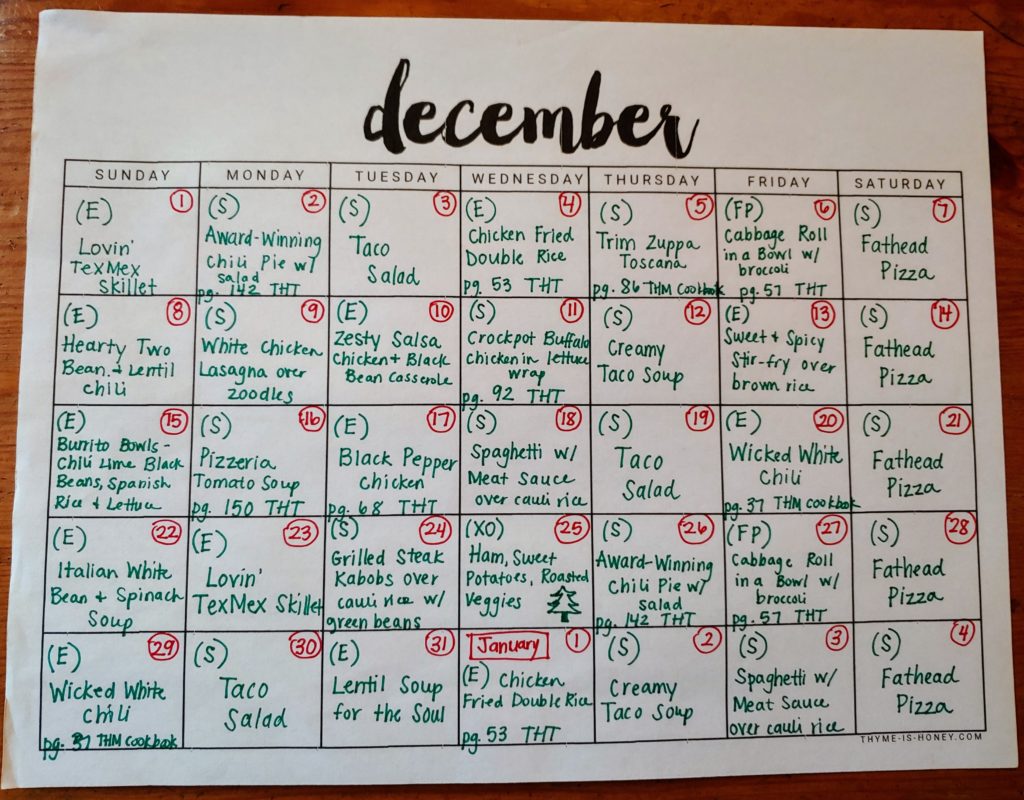 december
SUNDAY MONDAY TUESDAY WEDNESDAY THURSDAY FRIDAY SATURDAY
(E) 1
Lovin'
TexMex
Skillet
(S) 2
Award-Winning
Chili Pie w/
salad
pg. 142 THT
(S) 3
Taco
Salad
(E) 4
Chicken Fried
Double Rice
pg. 53 THT
(S) 5
Trim Zuppa
Toscana
pg. 86 THM Cookbook
(FP) 6
Cabbage Roll
in a Bowl w/
broccoli
pg. 57 THT
(S) 7
Fathead
Pizza
(E) 8
Hearty Two
Bean + Lentil
Chili
(S) 9
White Chicken
Lasagna over
zoodles
(E) 10
Zesty Salsa
Chicken + Black
Bean Casserole
(S) 11
Crockpot Buffalo
chicken in lettuce
wrap
pg. 92 THT
(S) 12
Creamy
Taco Soup
(E) 13
Sweet + Spicy
Stir-fry over
brown rice
(S) 14
Fathead
Pizza
(E) 15
Burrito Bowls -
Chili Lime Black
Beans, Spanish
Rice + Lettuce
(S) 16
Pizzeria
Tomato Soup
pg. 150 THT
(E) 17
Black Pepper
Chicken
pg. 68 THT
(S) 18
Spaghetti w/
Meat Sauce
over cauli rice
(S) 19
Taco
Salad
(E) 20
Wicked White
Chili
pg. 37 THM cookbook
(S) 21
Fathead
Pizza
(E) 22
Italian White
Bean + Spinach
Soup
(E) 23
Lovin'
TexMex Skillet
(S) 24
Grilled Steak
Kabobs over
cauli rice w/
green beans
(XO) 25
Ham, Sweet
Potatoes, Roasted
Veggies
(S) 26
Award-Winning
Chili Pie w/
salad
pg. 142 THT
(FP) 27
Cabbage Roll
in a Bowl w/
broccoli
pg. 57 THT
(S) 28
Fathead
Pizza
(E) 29
Wicked White
Chili
pg. 37 THM cookbook
(S) 30
Taco
Salad
(E) 31
Lentil Soup
for the Soul
January 1
(E) Chicken
Fried Double Rice
pg. 53 THT
(S) 2
Creamy
Taco Soup
(S) 3
Spaghetti w/
Meat Sauce
over cauli rice
(S) 4
Fathead
Pizza
THYME-IS-HONEY.COM